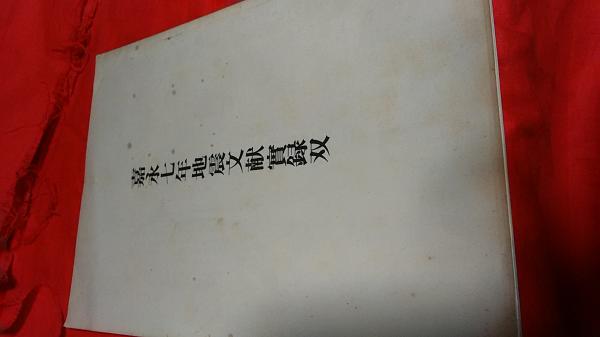 嘉永七年地震文献實録双